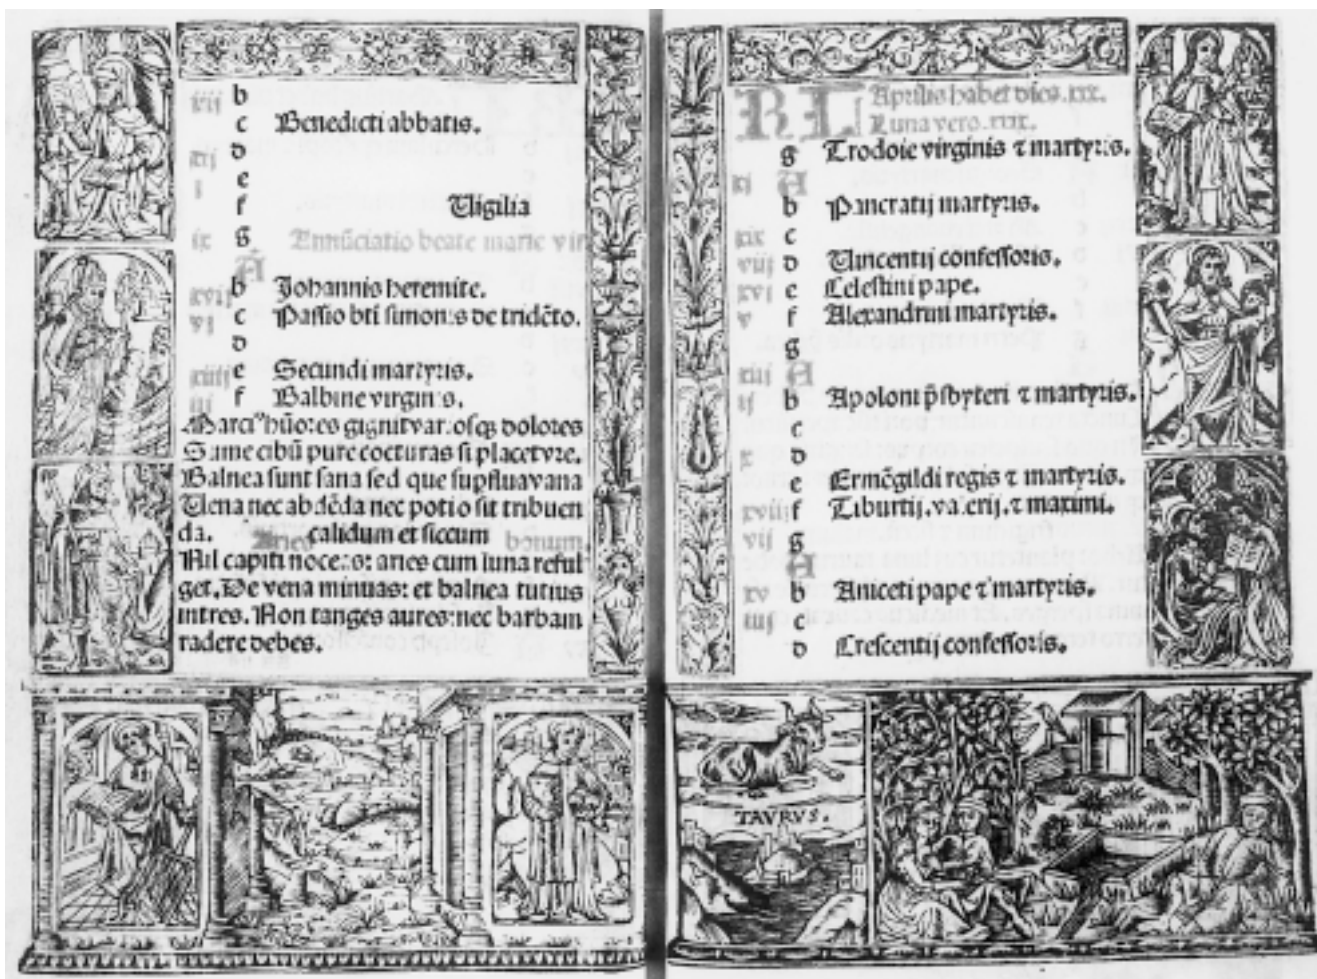 xvij b
c Benedicti abbatis.
xij d
i e
f Uigilia
ix g Annūciatio beate marie vir
A
xvij b Johannis heremite.
vj c Passio bti simonis de tridēto.
d
xiiij e Secundi martyris.
iij f Balbine virginis.
Marci⁹ hūores gignit var. osq3 dolores
Sume cibū pure cocturas si placet vre.
Balnea sunt sana sed que supfluavana
Uena nec abdēda nec potio sit tribuen
da. calidum et siccum
Aries bonum.
Nil capiti noceas: aries cum luna reful
get. De vena minuas: et balnea tutius
intres. Non tanges aures: nec barbam
radere debes.
KL Aprilis habet dies .xxx.
Luna vero .xxix.
g Trodoie virginis ⁊ martyris.
xj A
b Pancratij martyris.
xix c
viij d Uincentij confessoris.
xvj e Celestini pape.
v f Alexandrini martyris.
g
xiij A
ij b Apoloni p̄sbyteri ⁊ martyris.
c
x d
e Ermēgildi regis ⁊ martyris.
xviij f Tiburtij. valerij. ⁊ maximi.
vij g
A
xv b Aniceti pape ⁊ martyris.
iiij c
d Crescentij confessoris.
TAVRVS.